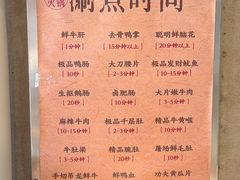 火锅
涮煮时间
鲜牛肝 去骨鸭掌 聪明鲜脑花
[1分钟] [15分钟以上] [20分钟以上]
极品鸭肠 大刀腰片 极品发财鱿鱼
[10-15秒] [2-3分钟] [10-15秒]
生抠鹅肠 卤肥肠 大片嫩牛肉
[10-15秒] [10分钟] [1分钟]
麻辣牛肉 极品千层肚 精品牛黄喉
[10分钟] [10-15秒] [1分钟]
牛肚梁 精品脆肚 屠场鲜毛肚
[3-5分钟] [20秒] [10-15秒]
手切吊龙鲜牛 鲜鸭血 功夫黄瓜片